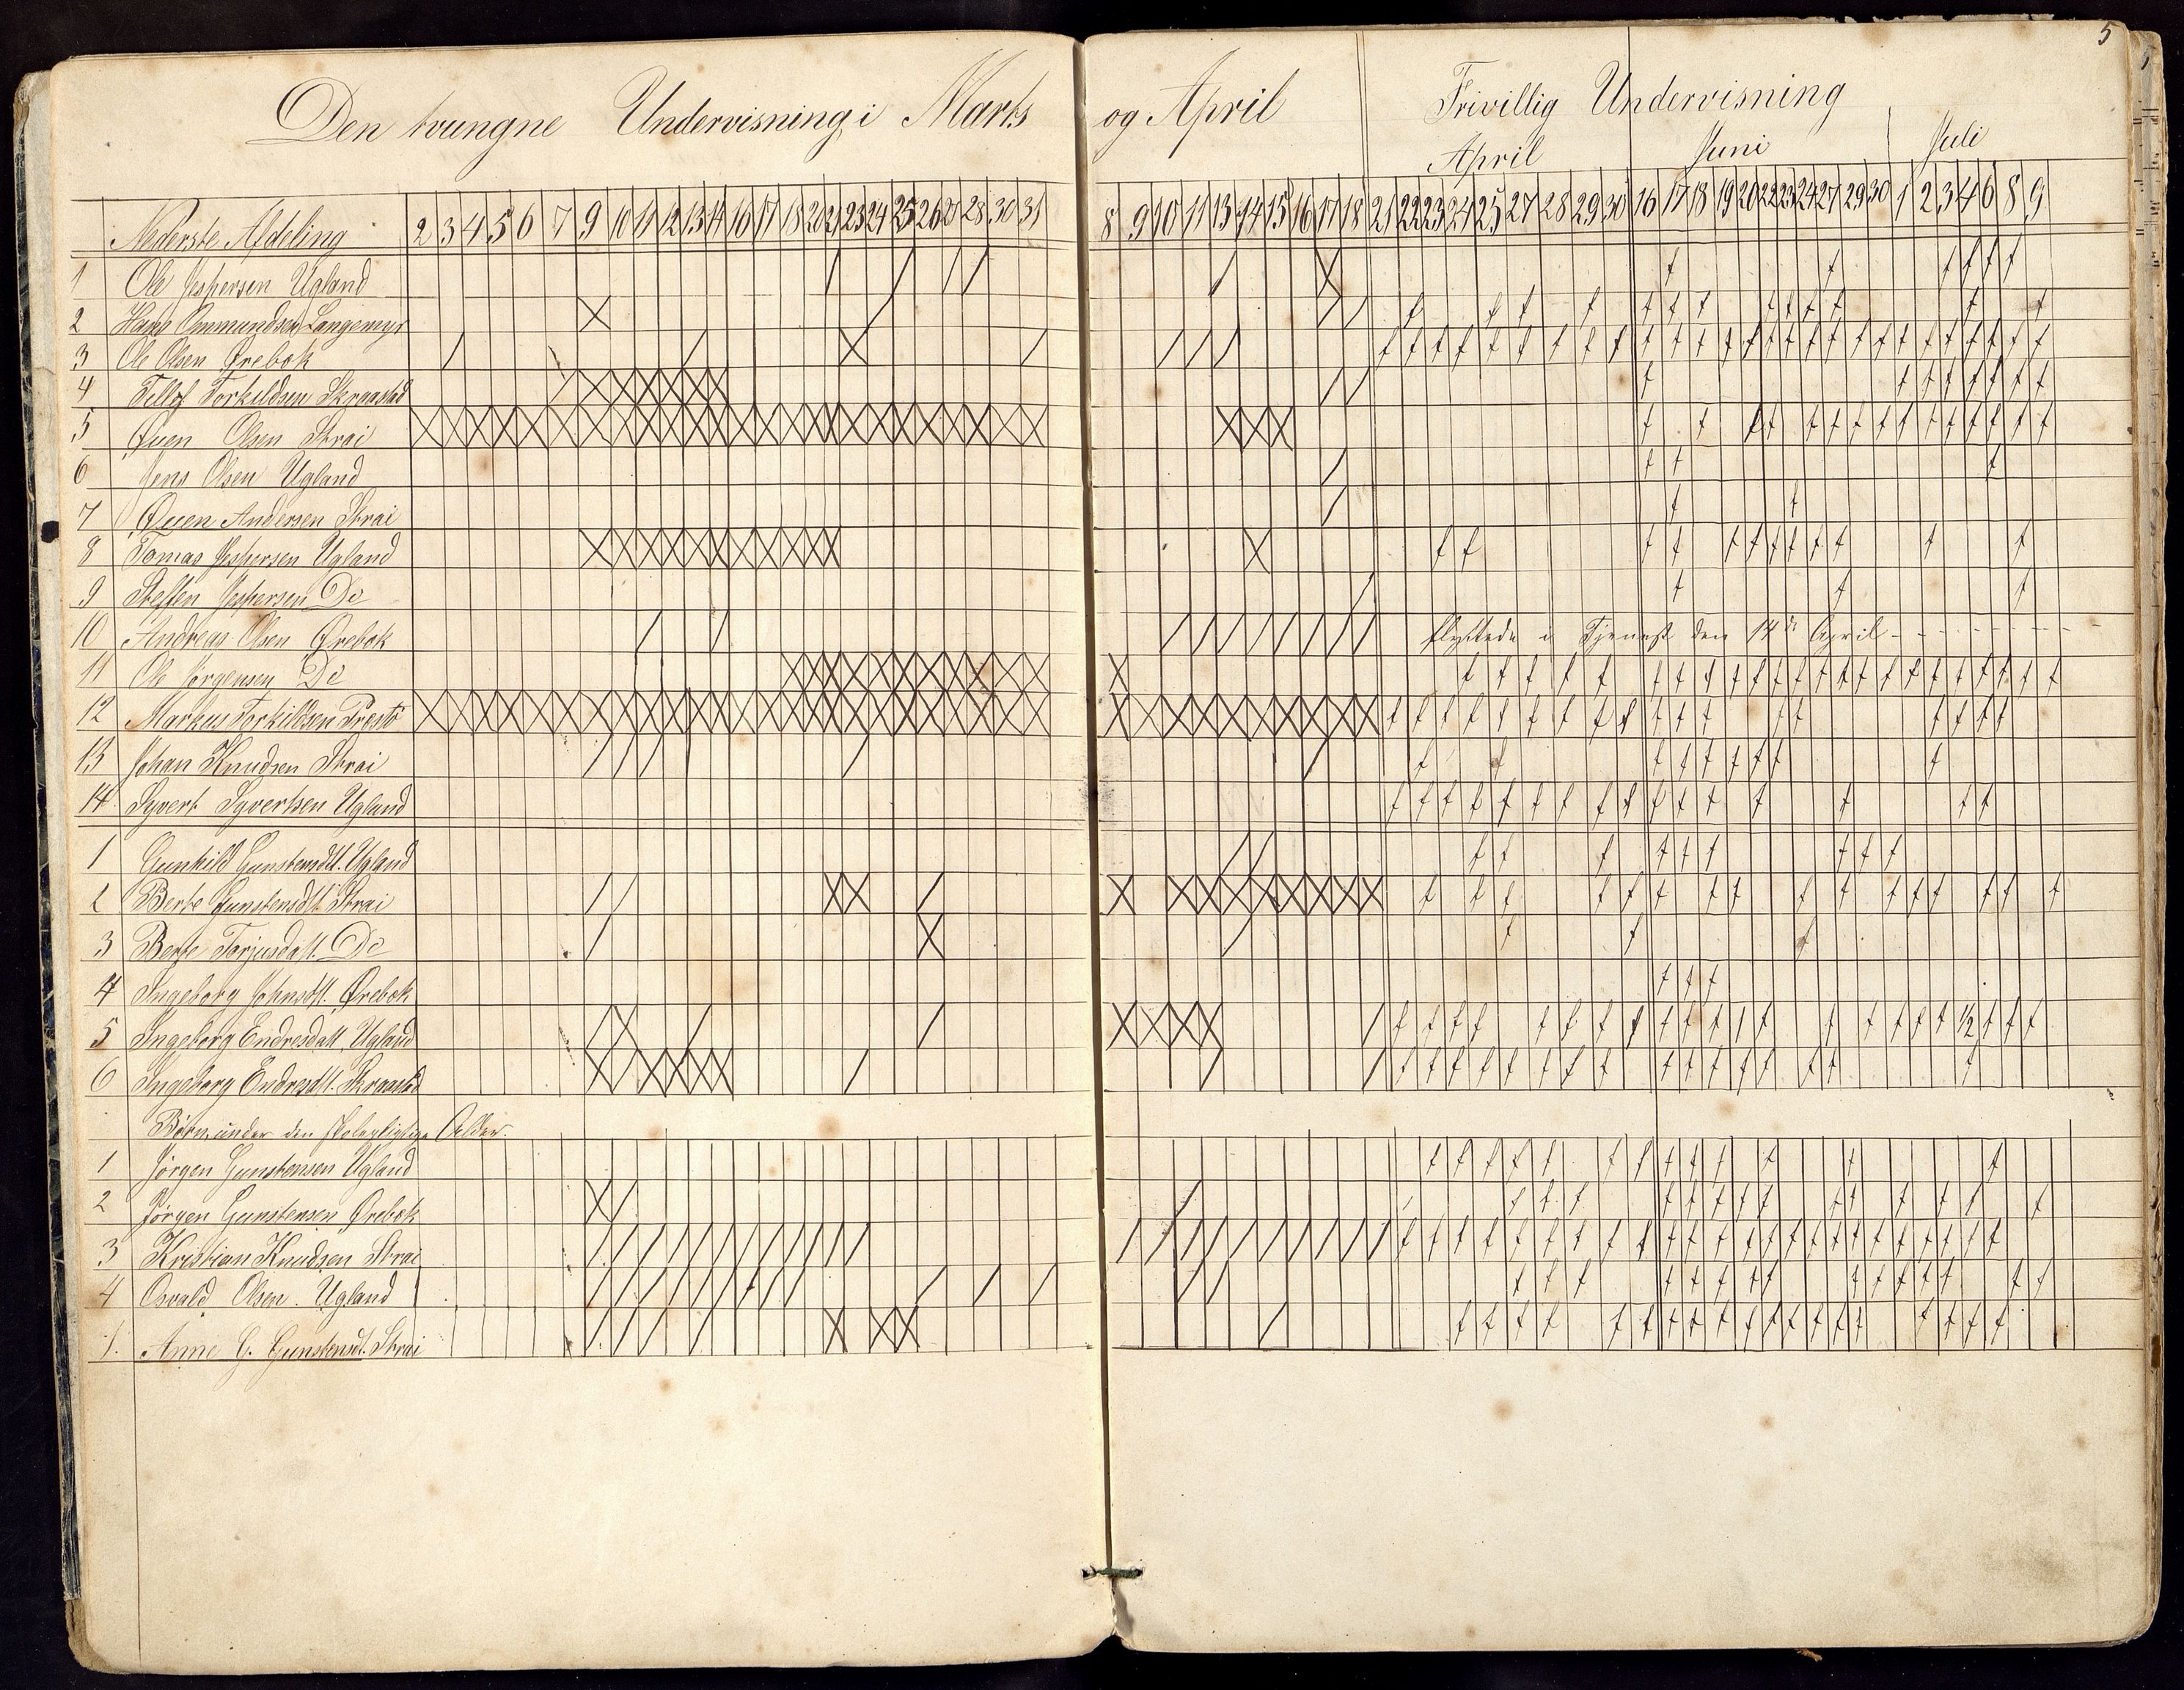 5
Den tvungne Undervisning i Marts og April Frivillig Undervisning
April Juni Juli
Nederste Afdeling 2 3 4 5 6 7 9 10 11 12 13 14 16 17 18 20 21 23 24 25 26 27 28 30 31 8 9 10 11 13 14 15 16 17 18 21 22 23 24 25 27 28 29 30 16 17 18 19 20 22 23 24 27 29 30 1 2 3 4 6 8 9
1 Ole Jespersen Ugland
2 Hans Ommundsen Langemyr
3 Ole Olsen Ørebæk
4 Tellef Torkildsen Skraastad
5 Øuen Olsen Strai
6 Jens Olsen Ugland
7 Øuen Andersen Strai
8 Tomas Jespersen Ugland
9 Steffen Jespersen Do
10 Andreas Olsen Ørebæk flyttede i Tjeneste den 14de April
11 Ole Jørgensen Do
12 Markus Torkildsen Præstø
13 Johan Knudsen Strai
14 Syvert Syvertsen Ugland
1 Gunhild Gunstensdtt. Ugland
2 Berte Gunstensdtt. Strai
3 Berte Torjusdatt. Do
4 Ingeborg Johnsdtt. Ørebæk
5 Ingeborg Endresdatt. Ugland ½
6 Ingeborg Endresdtt. Skraastad
Børn under den skolepligtige Alder.
1 Jørgen Gunstensen Ugland
2 Jørgen Gunstensen Ørebæk
3 Kristian Knudsen Strai
4 Osvald Olsen Ugland
1. Anne G. Gunstensdt. Strai